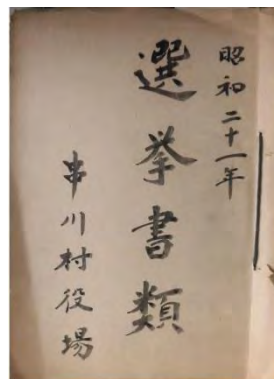 昭和二十一年
選挙書類
串川村役場